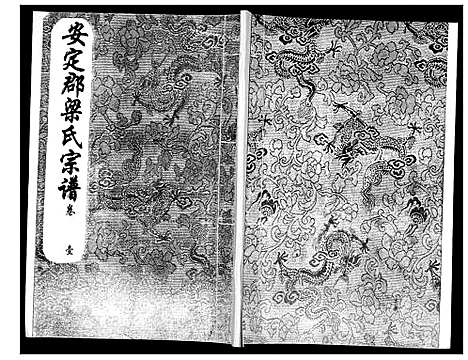 安定郡梁氏宗谱 卷 壹